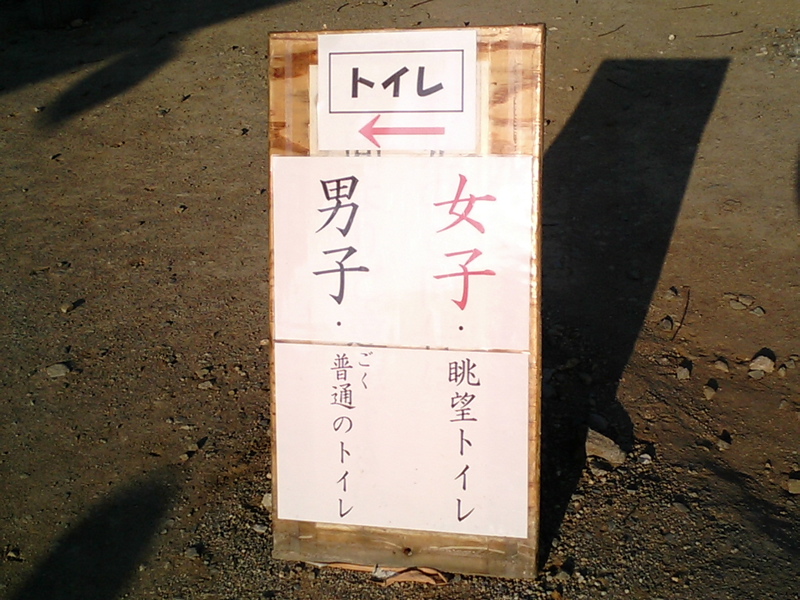 トイレ
女子・眺望トイレ
男子・ごく普通のトイレ